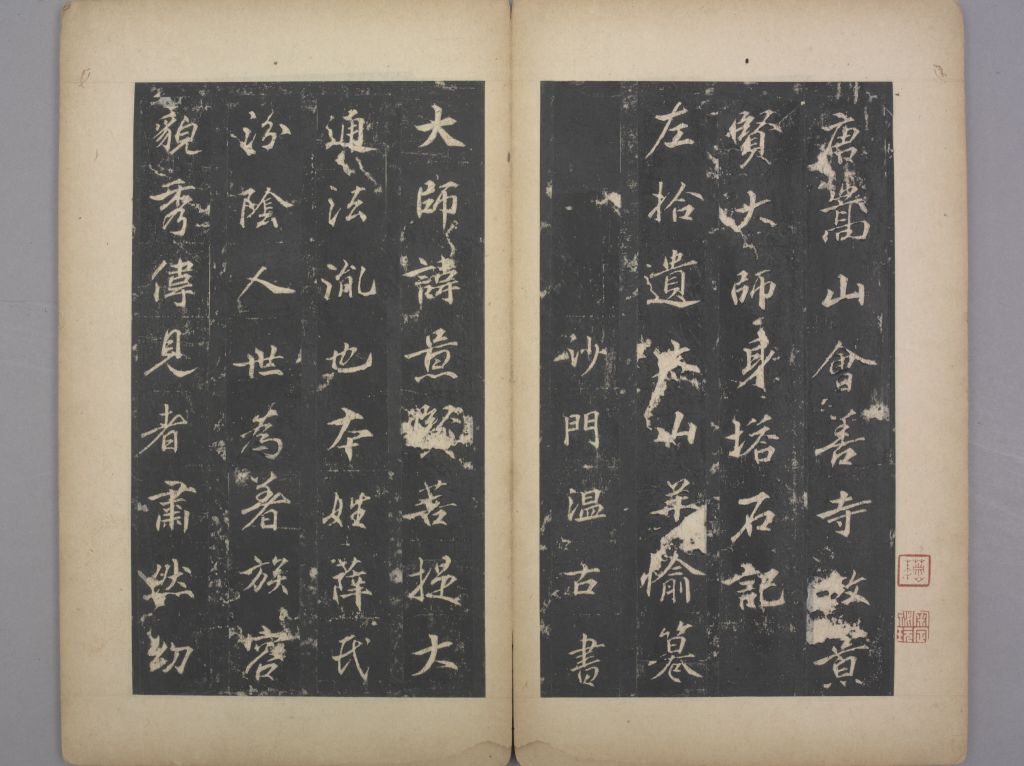 唐嵩山會善寺故景
賢大師身塔石記
左拾遺 山羊愉纂
沙門温古書
大師諱景賢菩提大
通法胤也本姓薛氏
汾陰人世為著族容
貌秀偉見者肅然幼